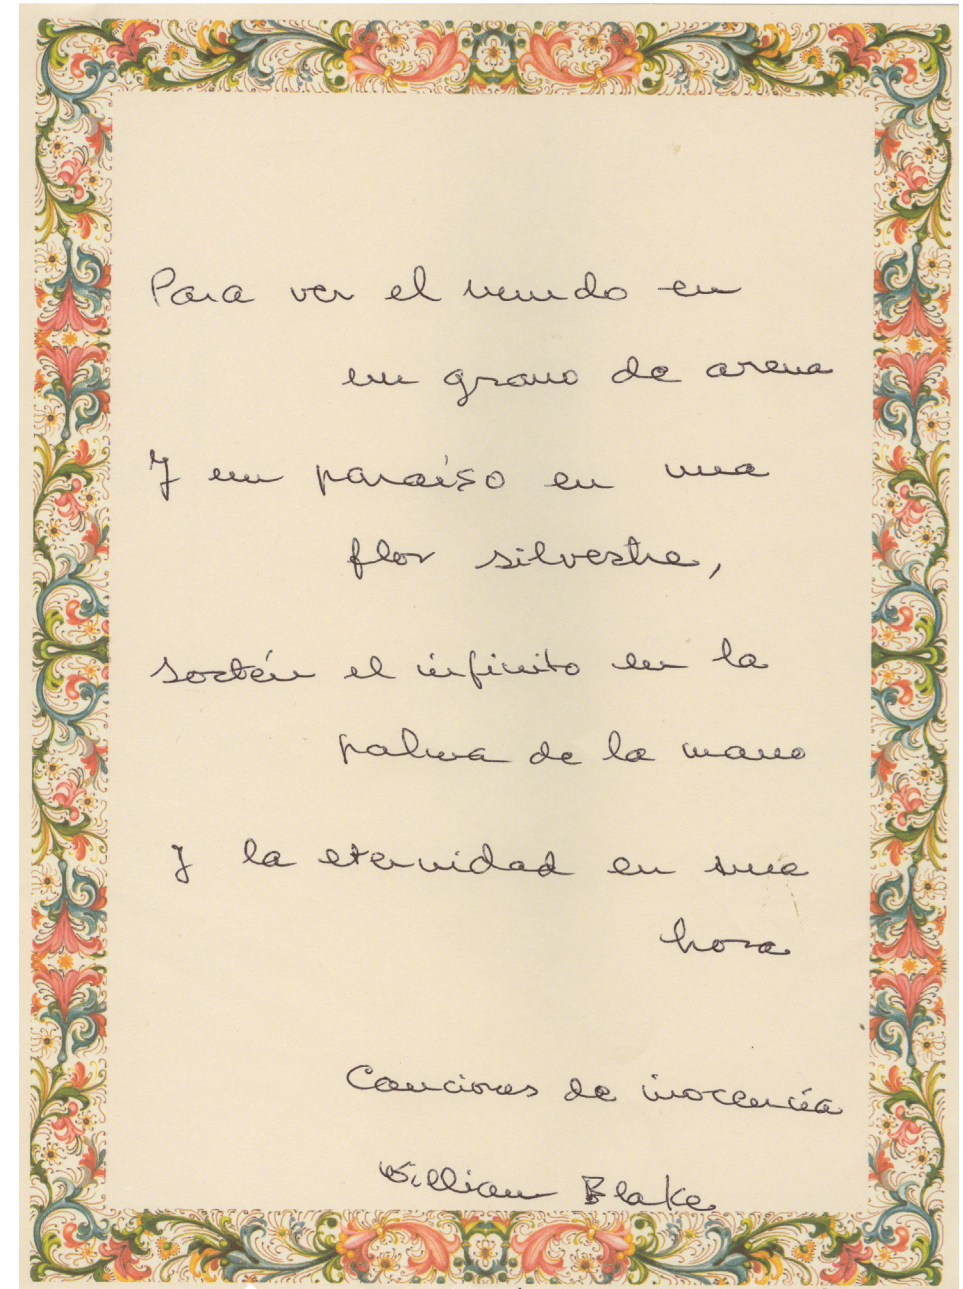 Para ver el mundo en
un grano de arena
Y un paraíso en una
flor silvestre,
sostén el infinito en la
palma de la mano
y la eternidad en una
hora
Canciones de inocencia
William Blake